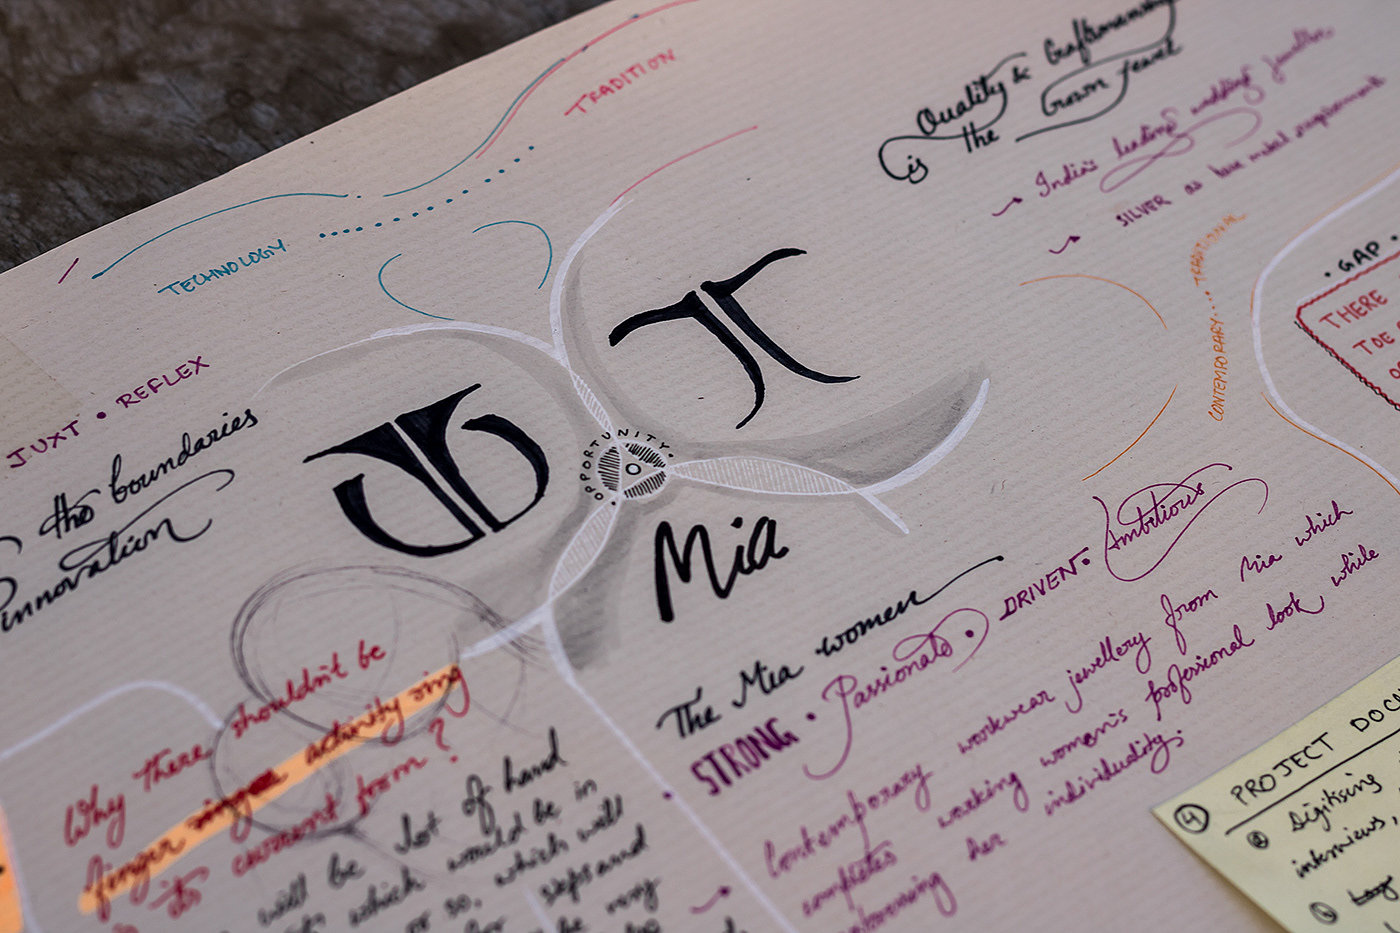 TRADITION
TECHNOLOGY
Quality & Craftsmanship
is the Crown Jewel
→ India's leading wedding jeweller
→ SILVER as base metal requirement
CONTEMPORARY .... TRADITIONAL
• GAP •
THERE
TOE
JUXT • REFLEX
the boundaries
innovation
• OPPORTUNITY •
Mia
The Mia women
STRONG • Passionate • DRIVEN • Ambitious
Contemporary workwear jewellery from Mia which
completes working women's professional look while
her individuality.
Why there shouldn't be
finger activity ring
its current form?
will be lot of hand
which would be in
or so, which will
steps and
be very
④ PROJECT DOCU
Digitising
interviews,